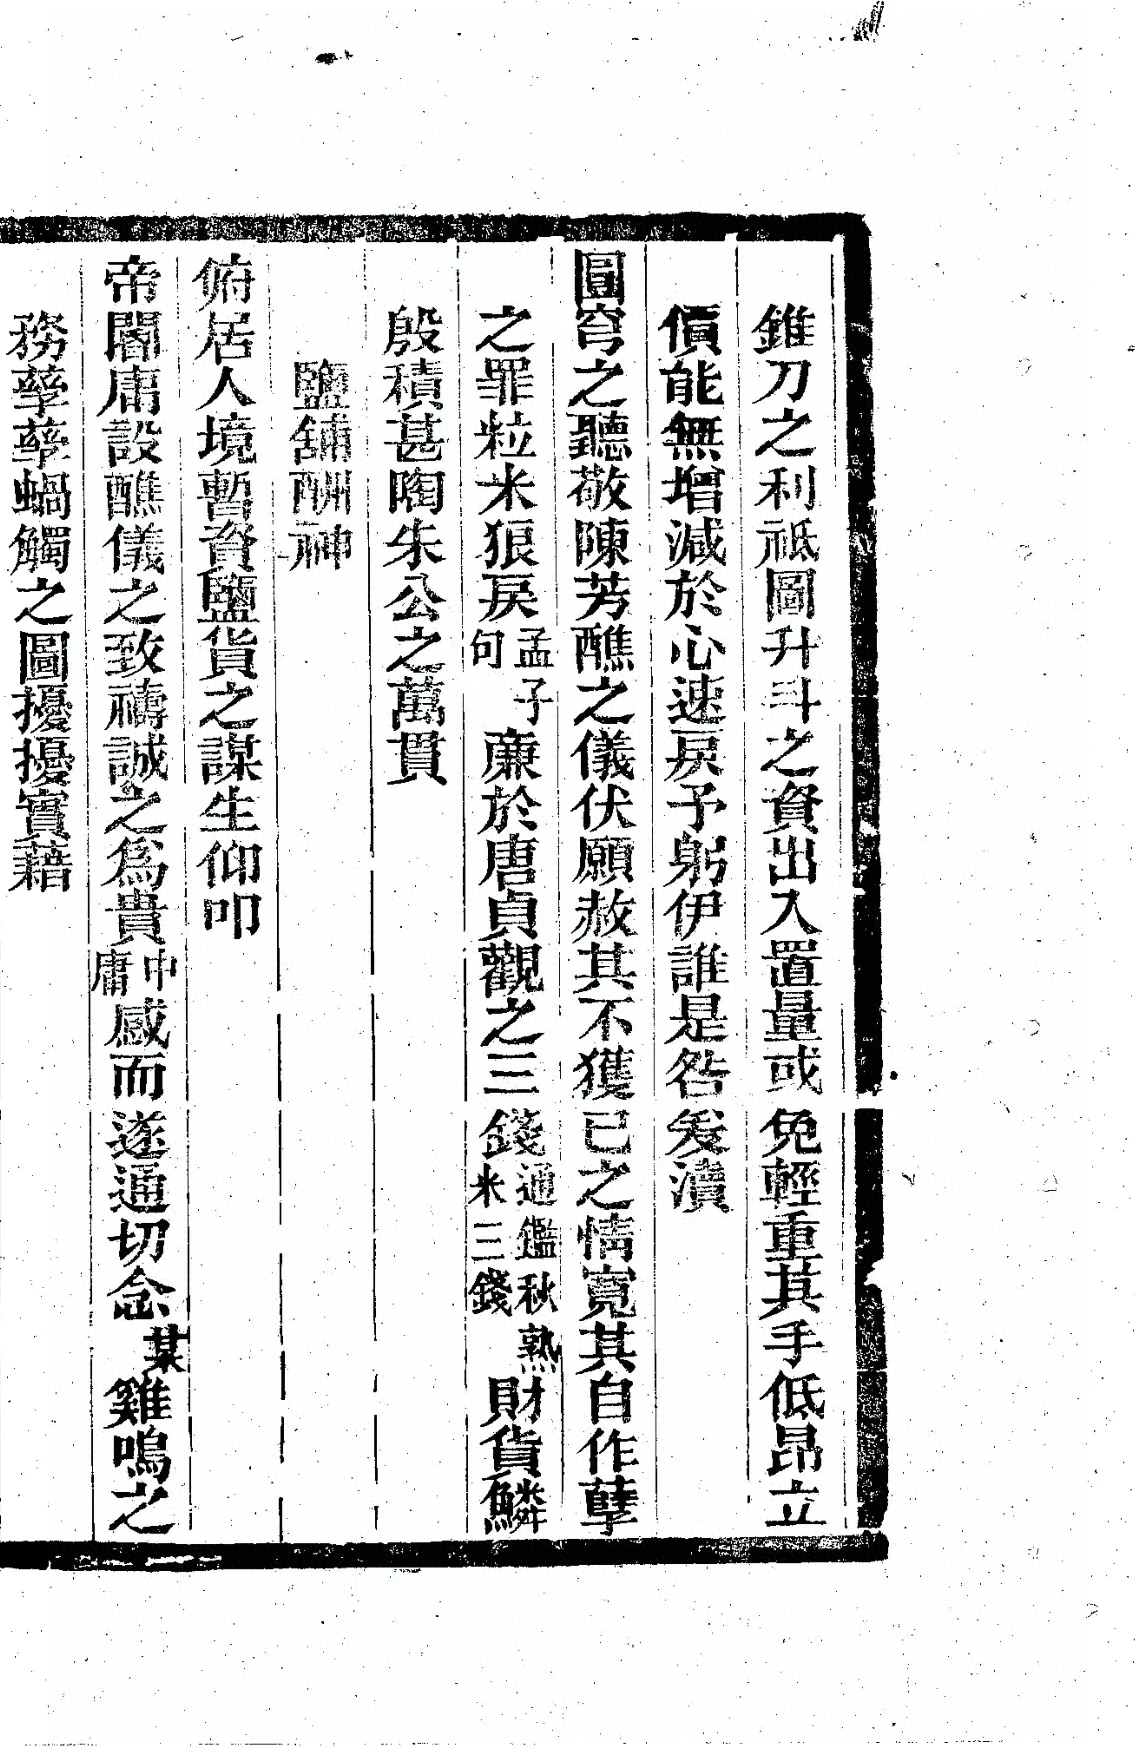 錐刀之利祗圖升斗之資出入置量或免輕重其手低昂立
價能無增減於心速戾予躬伊誰是咎爰瀆
圓穹之聽敬陳芳醮之儀伏願赦其不獲已之情寬其自作孽
之罪粒米狼戾孟子句廉於唐貞觀之三錢通鑑秋熟米三錢財貨鱗
殷積甚陶朱公之萬貫
鹽舖酬神
俯居人境暫資鹽貨之謀生仰叩
帝閽庸設醮儀之致禱誠之為貴中庸感而遂通切念某雞鳴之
務孳孳蝸觸之圖擾擾實藉